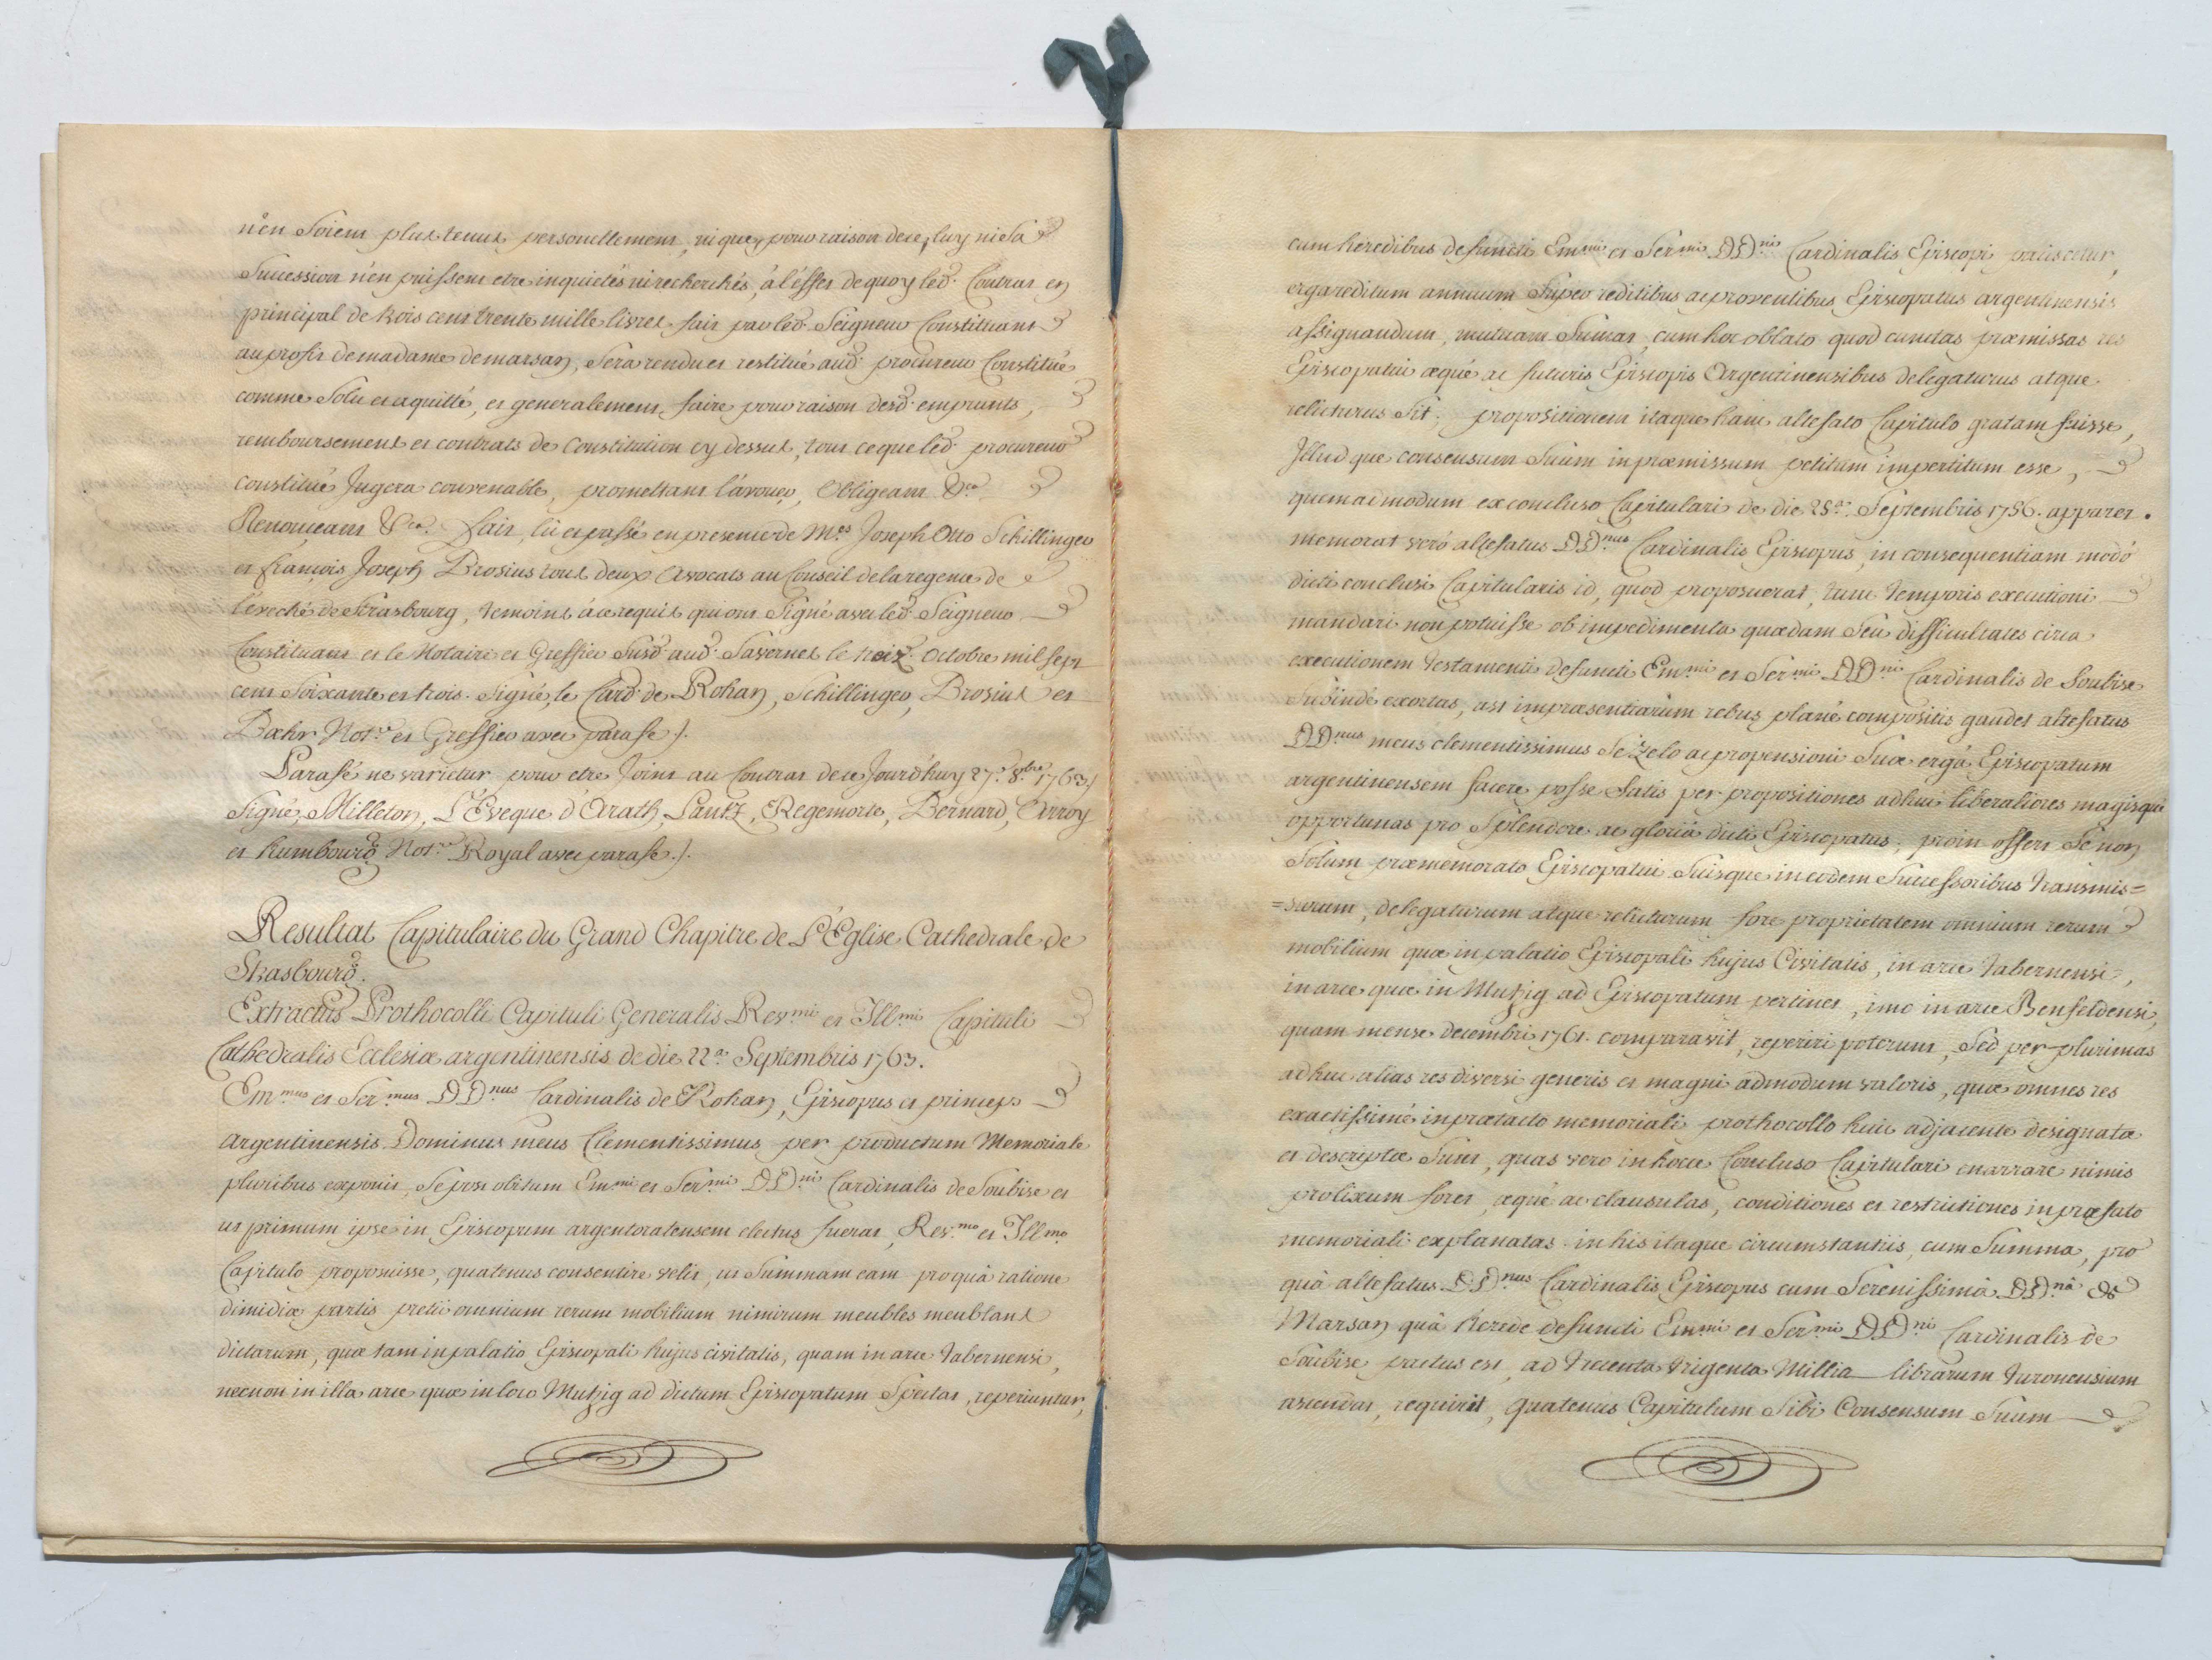 n'en Soient plus tenus personellement, ni que pour raison de ce, luy ni Sa
Succession n'en puissent etre inquietés ni recherchés, à l'effet de quoy led. Contrat en
principal de trois cent trente mille livres fait par led. Seigneur Constituant
au profit de madame de marsan, Sera rendu et restitué aud. procureur Constitué
comme Solu et aquitté, et generalement faire pour raison desd. emprunts,
remboursement et contrats de Constitution cy dessus, tout ce que led. procureur
constitué Jugera convenable, promettant l'avouer, Obligeant &ca
Renonçeant &ca. fait, lû et passé en presence de Mes. Joseph Otto Schillinger
et françois Joseph Brosius tous deux Avocats au Conseil de la regence de
l'evêché de Strasbourg, temoins à ce requis qui ont Signé avec led. Seigneur
Constituant et le Notaire et Greffier Susd. aud. Savernes le treize. Octobre mil sept
cent Soixante et trois. Signé, le Card. de Rohan, Schillinger, Brosius et
Bæhr Not.re et Greffier avec parafe /.
Parafé ne varietur pour etre Joint au Contrat de ce Jourd'huy 27.e 8.bre 1763./
Signé, Milleton, L'Eveque d'Arath, Lantz, Regemorte, Bernard, Arroy
et humbourg Not.re Royal avec parafe /.
Resultat Capitulaire du Grand Chapitre de L'Eglise Cathedrale de
Strasbourg.
Extractus Prothocolli Capituli Generalis Rev.mi et Ill.mi Capituli
Cathedralis Ecclesiæ argentinensis de die 22.a Septembris 1763.
Em.mus et Ser.mus DD.nus Cardinalis de Rohan, Episcopus et princeps
argentinensis Dominus meus Clementissimus per productum Memoriale
pluribus exponit, Se post obitum Em.mi et Ser.mi DD.ni Cardinalis de Soubise et
ut primum ipse in Episcopum argentoratensem electus fuerat, Rev.mo et Ill.mo
Capitulo proposuisse, quatenus consentire velit, ut Summam eam pro quâ ratione
dimidiæ partis pretii omnium rerum mobilium nimirum meubles meublans
dictarum, quæ tam in palatio Episcopali hujus civitatis, quam in arce tabernensi,
necnon in illa arce quæ in loco Mutzig ad dictum Episcopatum Spectat, reperiuntur,
cum heredibus defuncti Em.mi et Ser.mi DD.ni Cardinalis Episcopi paciscetur,
erga reditum annuum Super reditibus ac proventibus Episcopatus argentinensis
assignandum, mutuam Sumat, cum hoc oblato quod cunctas præmissas res
Episcopatui æquè ac futuris Episcopis Argentinensibus delegaturus atque
relicturus Sit; propositionem itaque hanc altefato Capitulo gratam fuisse,
Illudque consensum Suum in præmissum petitum impertitum esse,
quemadmodum ex concluso Capitulari de die 28.a Septembris 1756. apparet.
memorat verò altefatus DD.nus Cardinalis Episcopus, in consequentiam modò
dicti conclusi Capitularis id, quod proposuerat, tunc temporis executioni
mandari non potuisse ob impedimenta quædam Seu difficultates circa
executionem testamenti defuncti Em.mi et Ser.mi DD.ni Cardinalis de Soubise
Subindè exortas, ast impræsentiarum rebus planè compositis gaudet altefatus
DD.nus meus clementissimus Se zelo ac propensioni Suæ ergà Episcopatum
argentinensem facere posse Satis per propositiones adhuc liberaliores magisque
opportunas pro Splendore ac gloriâ dicti Episcopatus, proin offert Se non
Solum præmemorato Episcopatui Suisque in eodem Successoribus transmis=
=surum, delegaturum atque relicturum fore proprietatem omnium rerum
mobilium quæ in palatio Episcopali hujus Civitatis, in arce tabernensi,
in arce quæ in Mutzig ad Episcopatum pertinet, imo in arce Benfeldensi,
quam mense decembri 1761. comparavit, reperiri poterunt, Sed per plurimas
adhuc alias res diversi generis et magni admodum valoris, quæ omnes res
exactissimè in prætacto memoriali prothocollo huic adjacente designatæ
et descriptæ Sunt, quas vero in hocce Concluso Capitulari enarrare nimis
prolixum foret, æquè ac clausulas, conditiones et restrictiones in præfato
memoriali explanatas. in his itaque circumstantiis, cum Summa, pro
quâ altefatus DD.nus Cardinalis Episcopus cum Serenissimâ DD.nâ de
Marsan quâ herede defuncti Em.mi et Ser.mi DD.ni Cardinalis de
Soubise pactus est, ad trecenta triginta Millia librarum turonensium
ascendat, requirit, quatenus Capitulum Sibi Consensum Suum